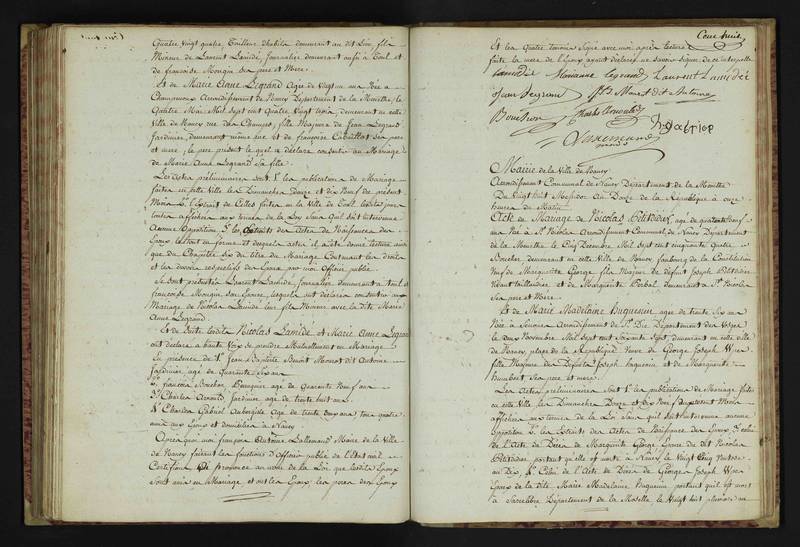 quatre vingt quatre, Tailleur d'habits demeurant au dit lieu, fils
Mineur de Laurent Lamidé, Journalier demeurant aussi à Toul et
de françoise Mongin ses pere et Mere.
Et de Marie Anne Legrand Agée de vingt un ans Née à
Champenoux Arrondissement de Nancy Département de la Meurthe, le
quatre Mai Mil Sept cent quatre vingt trois, demeurant en cette
ville de Nancy rue des Champs, fille Majeure de Jean Legrand
Jardinier, demeurant même rue et de françoise Cabaillot ses pere
et mere; le pere present lequel a déclaré consentir au Mariage
de Marie Anne Legrand Sa fille.
Les Actes préliminaires sont 1° les publications de Mariage
faites en cette ville les Dimanches Douze et dix Neuf du présent
Mois 2° l'Extrait de Celles faites en la ville de Toul
affichées aux termes de la Loy Sans qu'il soit intervenu
Aucune Opposition 3° les Extraits des Actes de Naissances des
Epoux le tout en forme et desquels actes il a été donné lecture ainsi
que du Chapitre six du titre du Mariage Contenant les droits
et les devoirs respectifs des Epoux par moi Officier public.
Se sont présentés Laurent Lamidé, Journalier demeurant à Toul et
françoise Mongin son Epouse, lesquels ont déclaré consentir au
Mariage de Nicolas Lamidé leur fils Mineur avec la dite Marie
Anne Legrand.
Et de suite lesdits Nicolas Lamidé et Marie Anne Legrand
ont déclaré à haute Voix se prendre Mutuellement en Mariage
En présence de 1° Jean Baptiste Benoit Monot dit Antoine
Jardinier, agé de Quarante Six ans
2° françois Bouchon, agé de Quarante Neuf ans
3° Charles Arnould, Jardinier agé de trente huit ans
4° Charles Gabriel Aubergiste Agé de trente deux ans tous quatre
amis aux Epoux et domiciliés à Nancy
Après quoi moi françois Antoine Lallemand Maire de la Ville
de Nancy faisant les fonctions d'Officier public de l'Etat civil
Certifiant de prononcé au nom de la Loi, que lesdits Epoux
Sont unis en Mariage et ont les Epoux les peres des Epoux
Cent huit
Et les quatre temoins Signé avec moi après lecture
faite, la mere de l'Epoux ayant déclaré ne savoir signer, de ce interpellée
Lamidé Marianne Legrand Laurent Lamidée
Jean Legrand J B Monot dit Antoine
Bouchon Charles Arnould
Gabriel
Lallemand
Mairie de la Ville de Nancy
Arrondissement Communal de Nancy Département de la Meurthe
Du Vingt huit Messidor An Douze de la République à onze
heures du Matin
Acte de Mariage de Nicolas agé de quarante Neuf
ans Né à St Nicolas Arrondissement Communal de Nancy Département
de la Meurthe, le Cinq Decembre Mil Sept cent cinquante quatre
Boucher demeurant en cette Ville de Nancy, faubourg de la Constitution
Veuf de Margueritte George fils Majeur de défunt Joseph
Vivant taillandier et de Marguerite demeurant à St Nicolas
Ses pere et Mere
Et de Marie Madelaine Huguenin agée de trente Six ans
Née à Senones Arrondissement de St Dié Département des Vosges
le deux Novembre Mil Sept cent Soixante Sept, demeurant en cette ville
de Nancy, place de la République Veuve de George Joseph
fille Majeure des Défunts Joseph huguenin et de Marguerite
humbert Ses pere et mere.
Les Actes préliminaires sont 1° les publications de Mariage faites
en cette Ville les Dimanches Douze et dix Neuf du présent Mois
affichées aux termes de la Loi Sans qu'il soit intervenu aucune
Opposition 2° les Extraits des Actes de Naissance des Epoux 3° celui
de l'Acte de Décès de Marguerite George Epouse du dit Nicolas
portant qu'elle est morte à Nancy le Vingt Cinq Ventose
an Dix, 4° Celui de l'Acte de Décès de George Joseph
Epoux de la dite Marie Madelaine Huguenin portant qu'il est mort
à Sarrelibre Département de la Moselle, le Vingt huit pluviose an